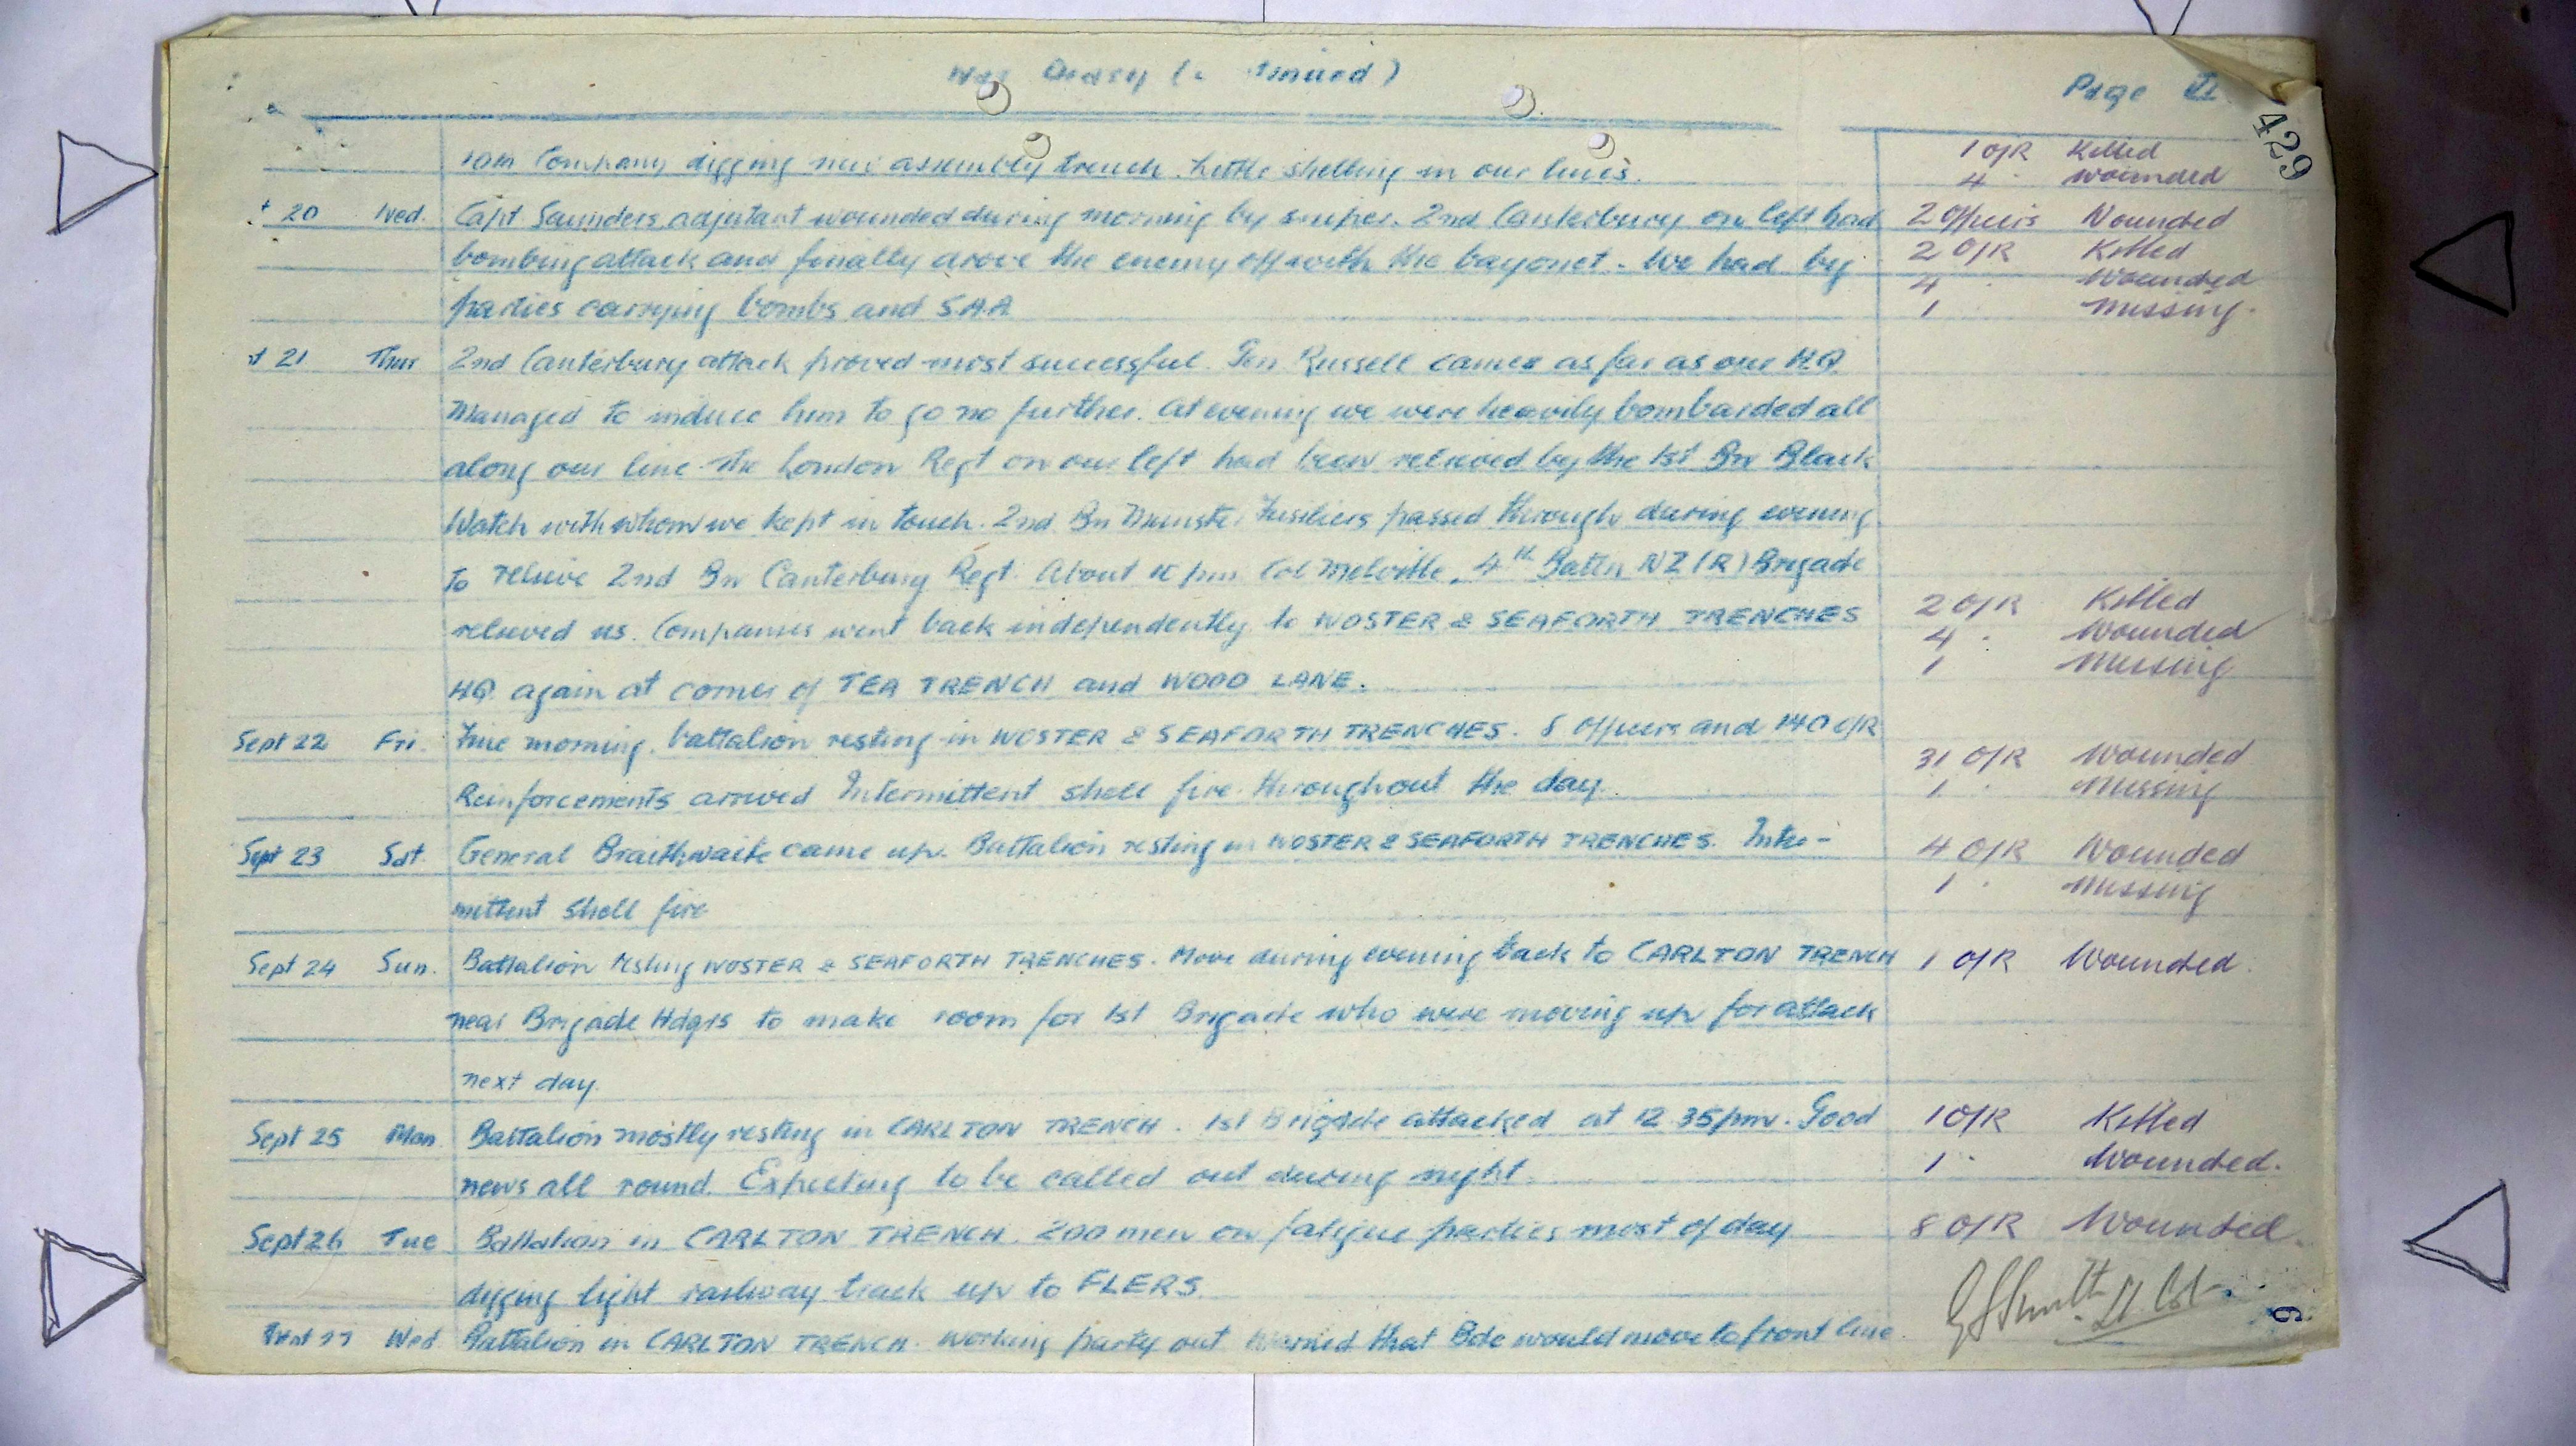 War Diary (continued) Page
429
10th Company digging new assembly trench. Little shelling in our lines. 1 O/R Killed
4 " Wounded
20 Wed. Capt Saunders adjutant wounded during morning by sniper. 2nd Canterbury on left had 2 Officers Wounded
bombing attack and finally drove the enemy off with the bayonet. We had big 2 O/R Killed
4 " Wounded
parties carrying bombs and S.A.A 1 Missing.
21 Thur 2nd Canterbury attack proved most successful. Gen Russell came as far as our H.Q.
Managed to induce him to go no further. At evening we were heavily bombarded all
along our line. The London Regt on our left had been relieved by the 1st Bn Black
Watch with whom we kept in touch. 2nd Bn Munster Fusiliers passed through during evening
to relieve 2nd Bn Canterbury Regt. About pm Col Melville, 4th Battn NZ (R) Brigade
relieved us. Companies went back independently to WOSTER & SEAFORTH TRENCHES 2 O/R Killed
4 " Wounded
HQ. again at corner of TEA TRENCH and WOOD LANE. 1 Missing
Sept 22 Fri. Fine morning, battalion resting in WOSTER & SEAFORTH TRENCHES. 8 Officers and 140 O/R
31 O/R Wounded
Reinforcements arrived Intermittent shell fire throughout the day. 1 " Missing
Sept 23 Sat. General Braithwaite came up. Battalion resting in WOSTER & SEAFORTH TRENCHES. Inter- 4 O/R Wounded
mittent shell fire 1 " Missing
Sept 24 Sun. Battalion resting WOSTER & SEAFORTH TRENCHES. Move during evening back to CARLTON TRENCH 1 O/R Wounded.
near Brigade Hdqrs to make room for 1st Brigade who were moving up for attack
next day.
Sept 25 Mon Battalion mostly resting in CARLTON TRENCH. 1st Brigade attacked at 12.35pm. Good 1 O/R Killed
news all round. Expecting to be called out during night. 1 " Wounded.
Sept 26 Tue Battalion in CARLTON TRENCH. 200 men on fatigue parties most of day 8 O/R Wounded.
digging light railway track up to FLERS
G S Smith Lt. Col.
9
Sept 27 Wed. Battalion in CARLTON TRENCH. Working party out Warned that Bde would move to front line